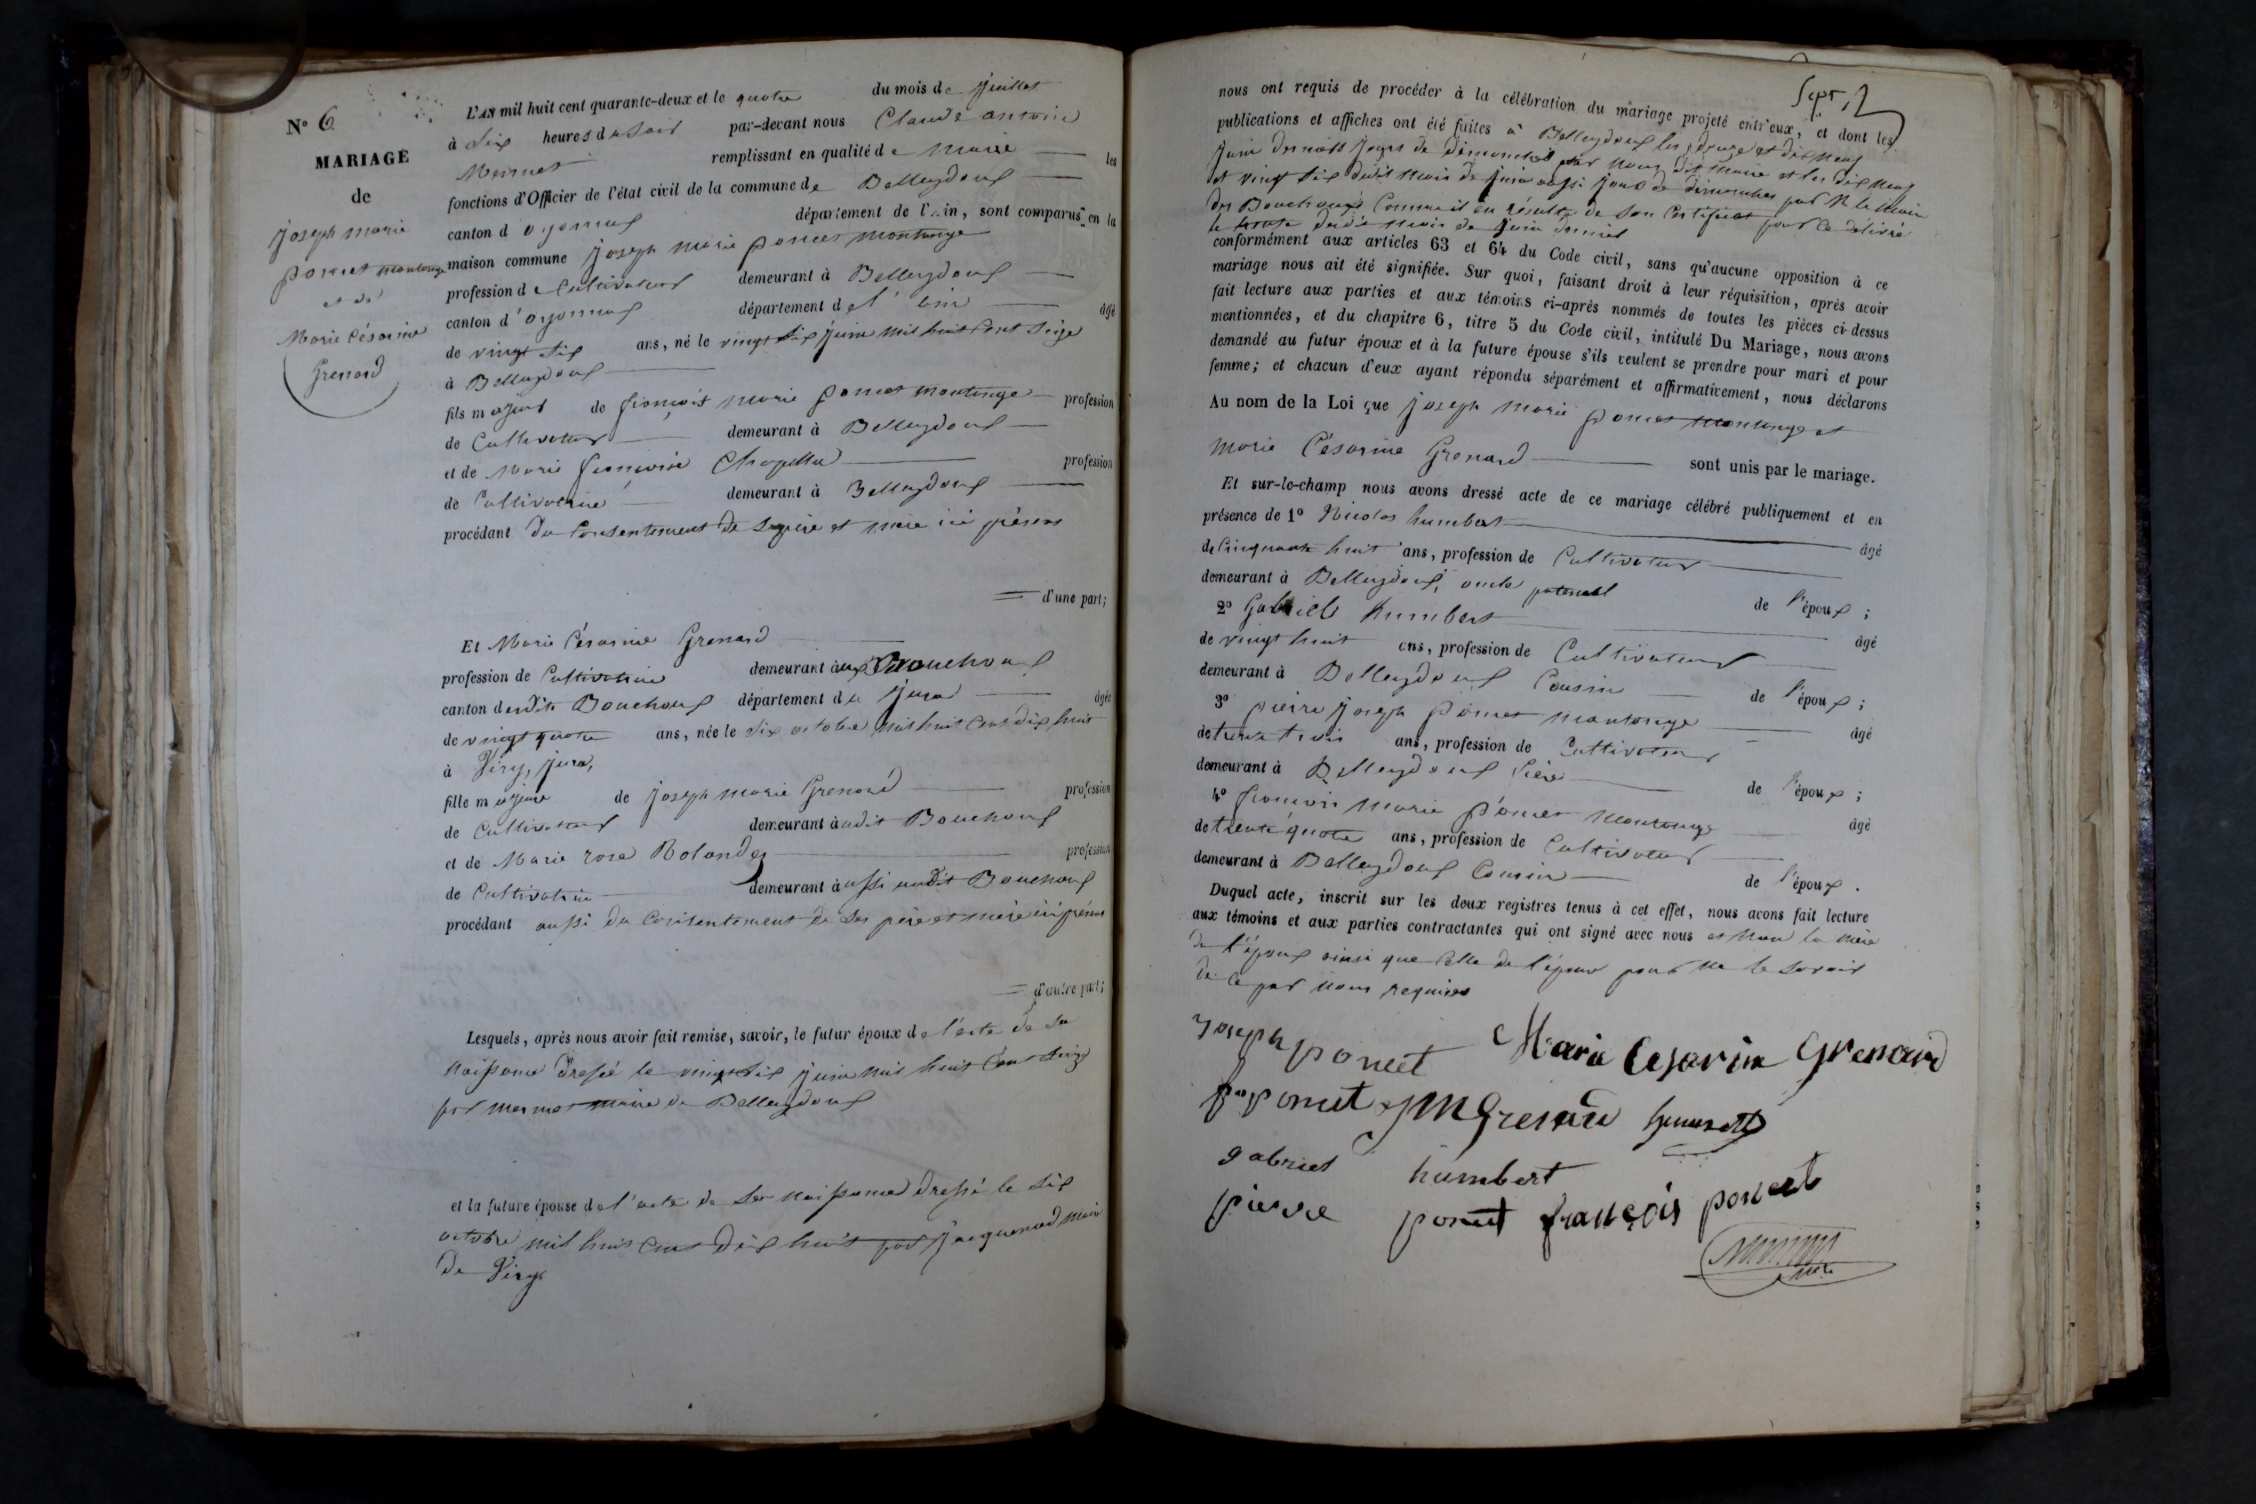 N° 6
MARIAGE
de
joseph marie
poncet montange
et de
Marie Césarine
Grenard
L'AN mil huit cent quarante-deux et le quatre du mois de juillet
à six heures du soir par-devant nous Claude antoine
Mermet remplissant en qualité de maire les
fonctions d'Officier de l'état civil de la commune de Belleydoux
canton d'oyonnax département de l'Ain, sont comparus en la
maison commune joseph marie poncet montange
profession de Cultivateur demeurant à Belleydoux
canton d'oyonnax département de l'ain âgé
de vingt six ans, né le vingt six juin mil huit cent seize
à Belleydoux
fils majeur de françois marie poncet montange profession
de Cultivateur demeurant à Belleydoux
et de marie françoise Chapellu profession
de Cultivatrice demeurant à Belleydoux
procédant du Consentement de ses père et mère ici présens
d'une part;
Et Marie Césarine Grenard
profession de Cultivatrice demeurant aux Bouchoux
canton desdits Bouchoux département du jura âgée
de vingt quatre ans, née le six octobre mil huit cent dix huit
à Viry, jura,
fille majeure de joseph marie Grenard profession
de Cultivateur demeurant audit Bouchoux
et de Marie rose Rolandez profession
de Cultivatrice demeurant aussi audit Bouchoux
procédant aussi du Consentement de ses père et mère ici présens
d'autre part;
Lesquels, après nous avoir fait remise, savoir, le futur époux de l'acte de sa
naissance dressé le vingt six juin mil huit cent seize
par mermet maire de Belleydoux
et la future épouse de l'acte de sa naissance dressé le six
octobre mil huit cent dix huit par jacquenod maire
de Viry
Sept, 2
nous ont requis de procéder à la célébration du mariage projeté entr'eux, et dont les
publications et affiches ont été faites à Belleydoux les douze et dix neuf
juin derniers jours de dimanches par nous dit maire et les dix neuf
et vingt six dudit mois de juin aussi jours de dimanches par M. le Maire
des Bouchoux Comme il en résulte de son Certificat pour ce délivré
le trente dudit mois de juin dernier
conformément aux articles 63 et 64 du Code civil, sans qu'aucune opposition à ce
mariage nous ait été signifiée. Sur quoi, faisant droit à leur réquisition, après avoir
fait lecture aux parties et aux témoins ci-après nommés de toutes les pièces ci-dessus
mentionnées, et du chapitre 6, titre 5 du Code civil, intitulé Du Mariage, nous avons
demandé au futur époux et à la future épouse s'ils veulent se prendre pour mari et pour
femme; et chacun d'eux ayant répondu séparément et affirmativement, nous déclarons
Au nom de la Loi que joseph marie poncet montange et
marie Césarine Grenard sont unis par le mariage.
Et sur-le-champ nous avons dressé acte de ce mariage célébré publiquement et en
présence de 1° Nicolas humbert âgé
de Cinquante huit ans, profession de Cultivateur
demeurant à Belleydoux, oncle paternel de l'époux;
2° Gabriel humbert âgé
de vingt huit ans, profession de Cultivateur
demeurant à Belleydoux Cousin de l'époux;
3° pierre joseph poncet montange âgé
de trente trois ans, profession de Cultivateur
demeurant à Belleydoux frère de l'époux;
4° françois marie poncet montange âgé
de trente quatre ans, profession de Cultivateur
demeurant à Belleydoux Cousin de l'époux.
Duquel acte, inscrit sur les doux registres tenus à cet effet, nous avons fait lecture
aux témoins et aux parties contractantes qui ont signé avec nous et non la mère
de l'époux ainsi que celle de l'épouse pour ne le savoir
de ce par nous requises
joseph poncet Marie Cesarine Grenard
poncet jMGrenard humbert
gabriel humbert
pierre poncet françois poncet
mermet